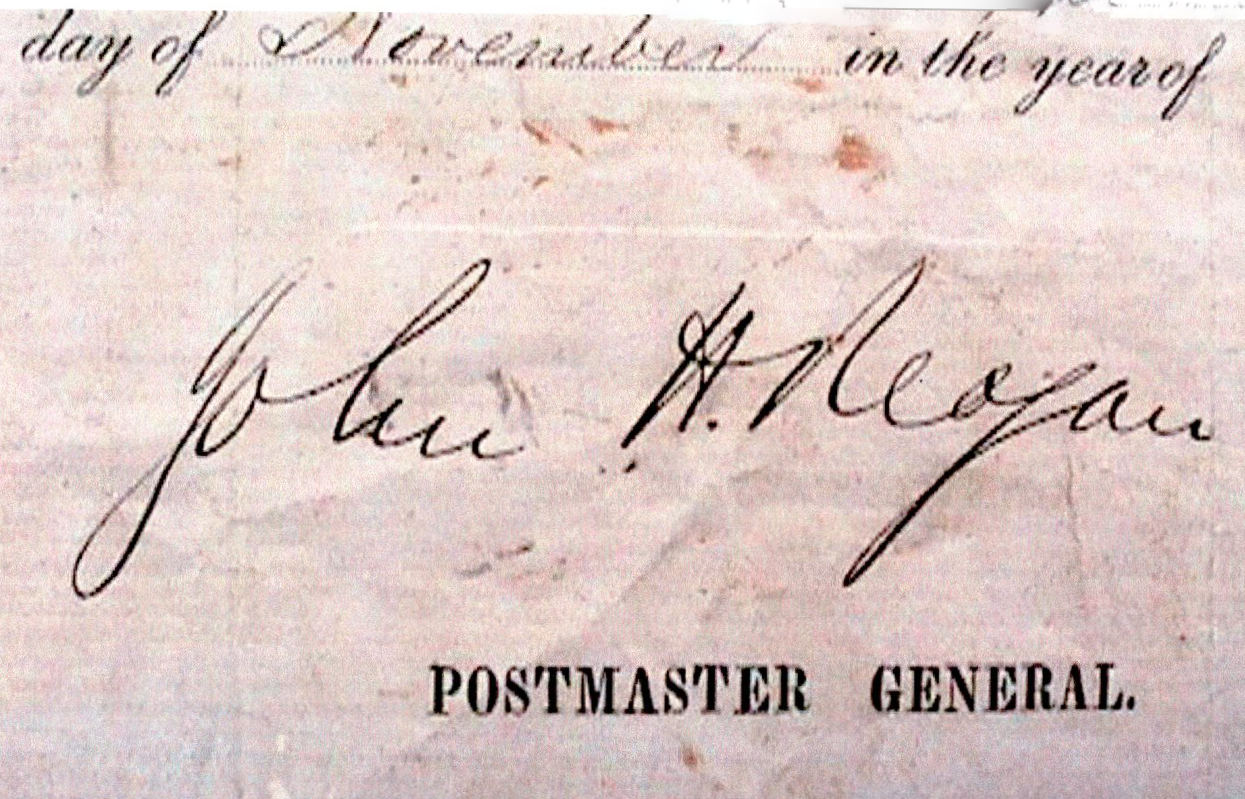 day of November in the year of
John H. Reagan
POSTMASTER GENERAL.